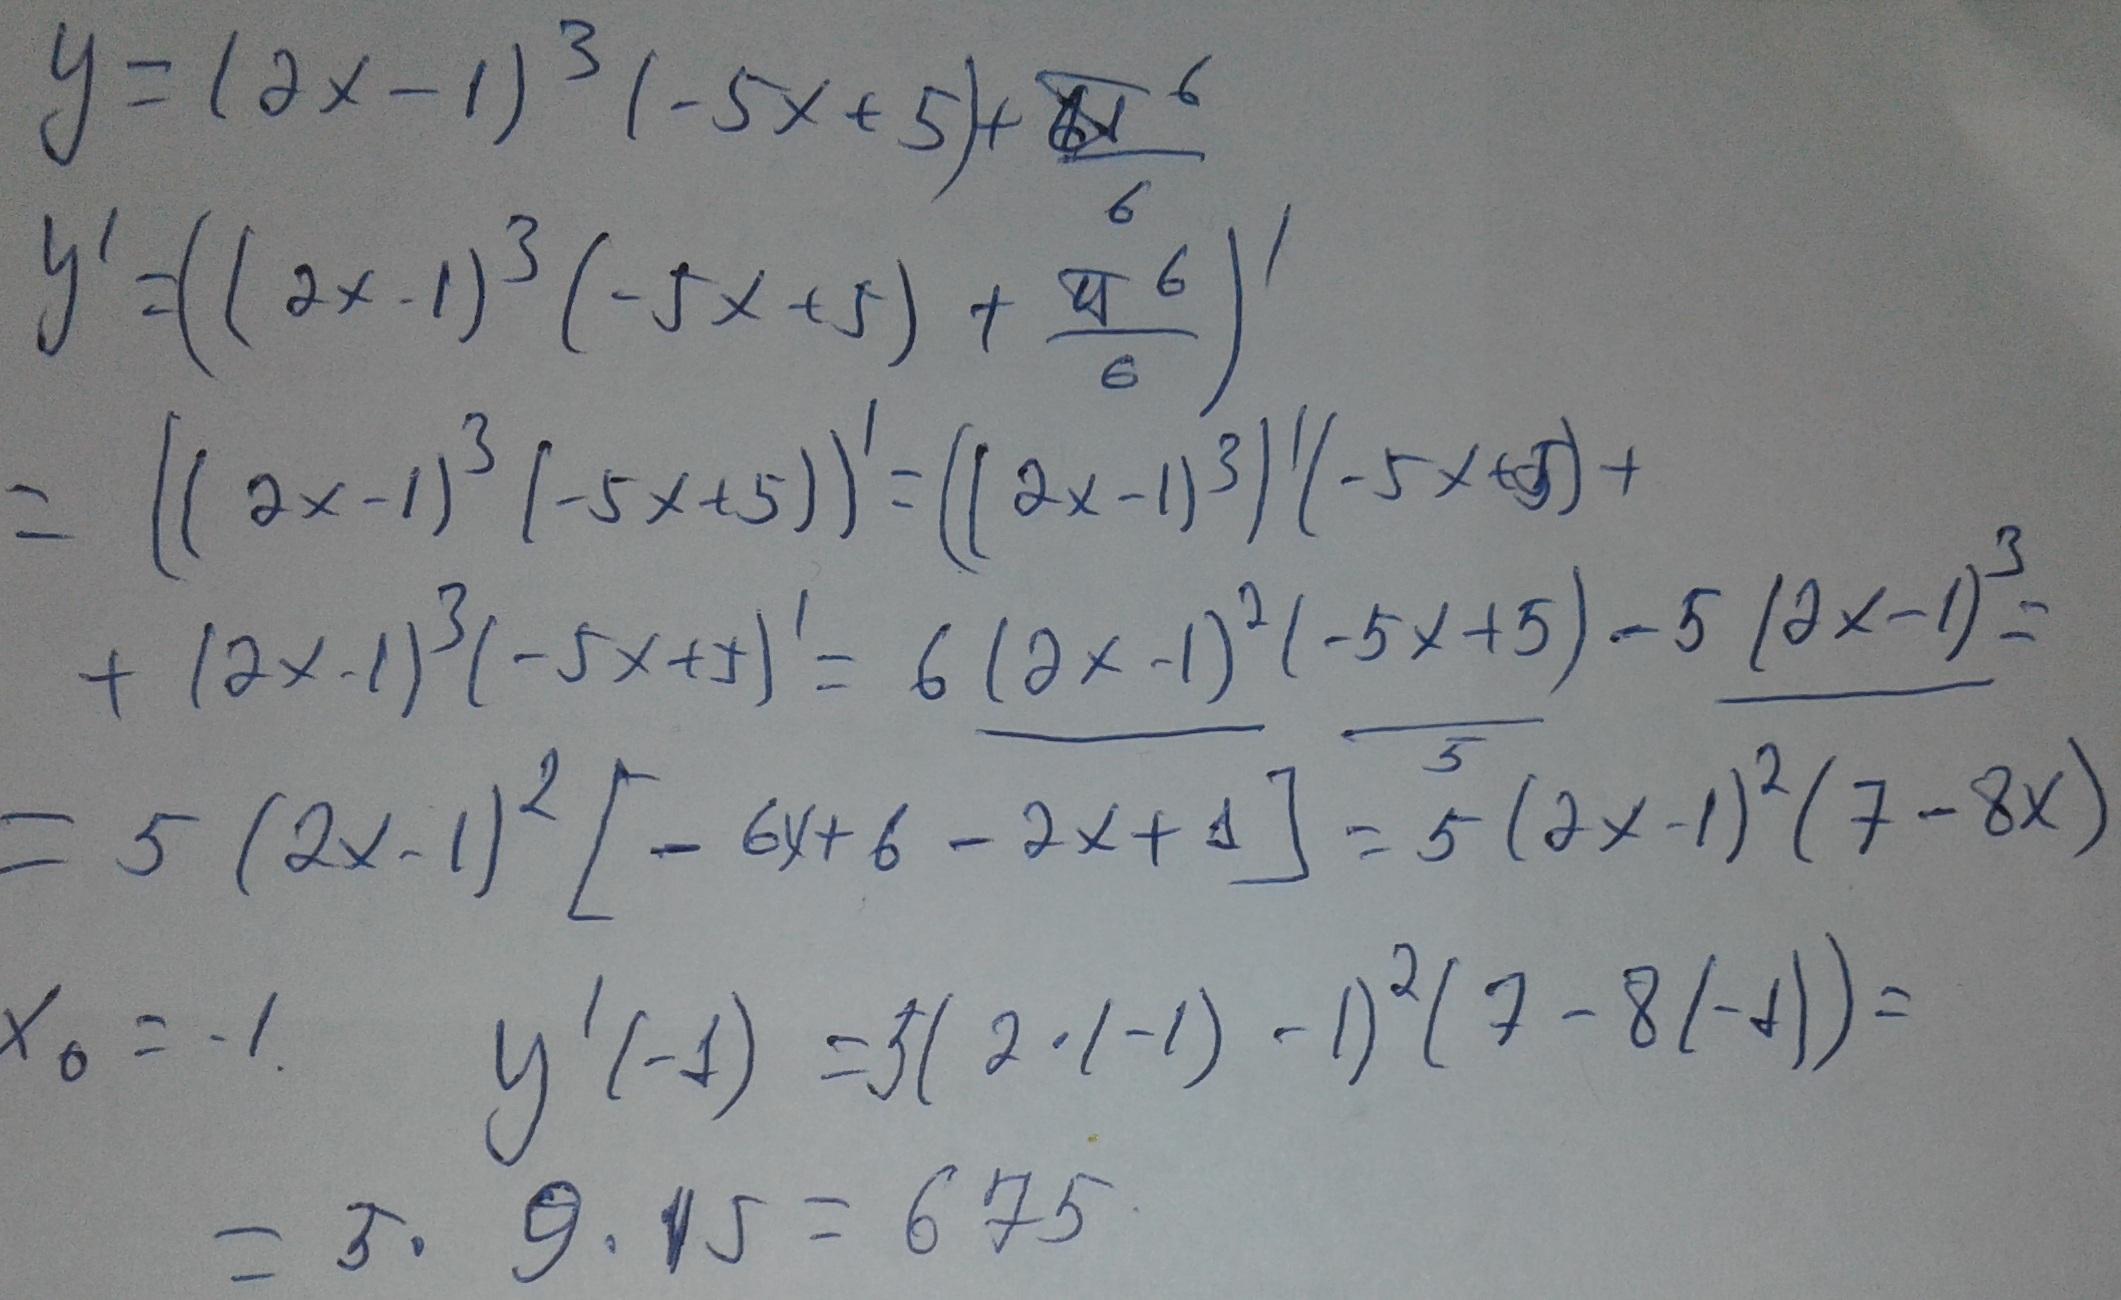 y = (2x-1)³(-5x+5)+π⁶/6
y' = ((2x-1)³(-5x+5) + π⁶/6)'
= ((2x-1)³(-5x+5))' = ((2x-1)³)'(-5x+5)+
+ (2x-1)³(-5x+5)' = 6(2x-1)²(-5x+5) - 5(2x-1)³ =
5
= 5(2x-1)²[-6x+6-2x+1] = 5(2x-1)²(7-8x)
x₀ = -1. y'(-1) = 5(2·(-1)-1)²(7-8(-1)) =
= 5·9·15 = 675.